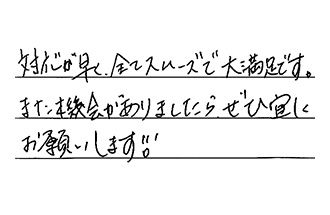 対応が早く、全てスムーズで大満足です。
また機会がありましたら、ぜひ宜しく
お願いします!!